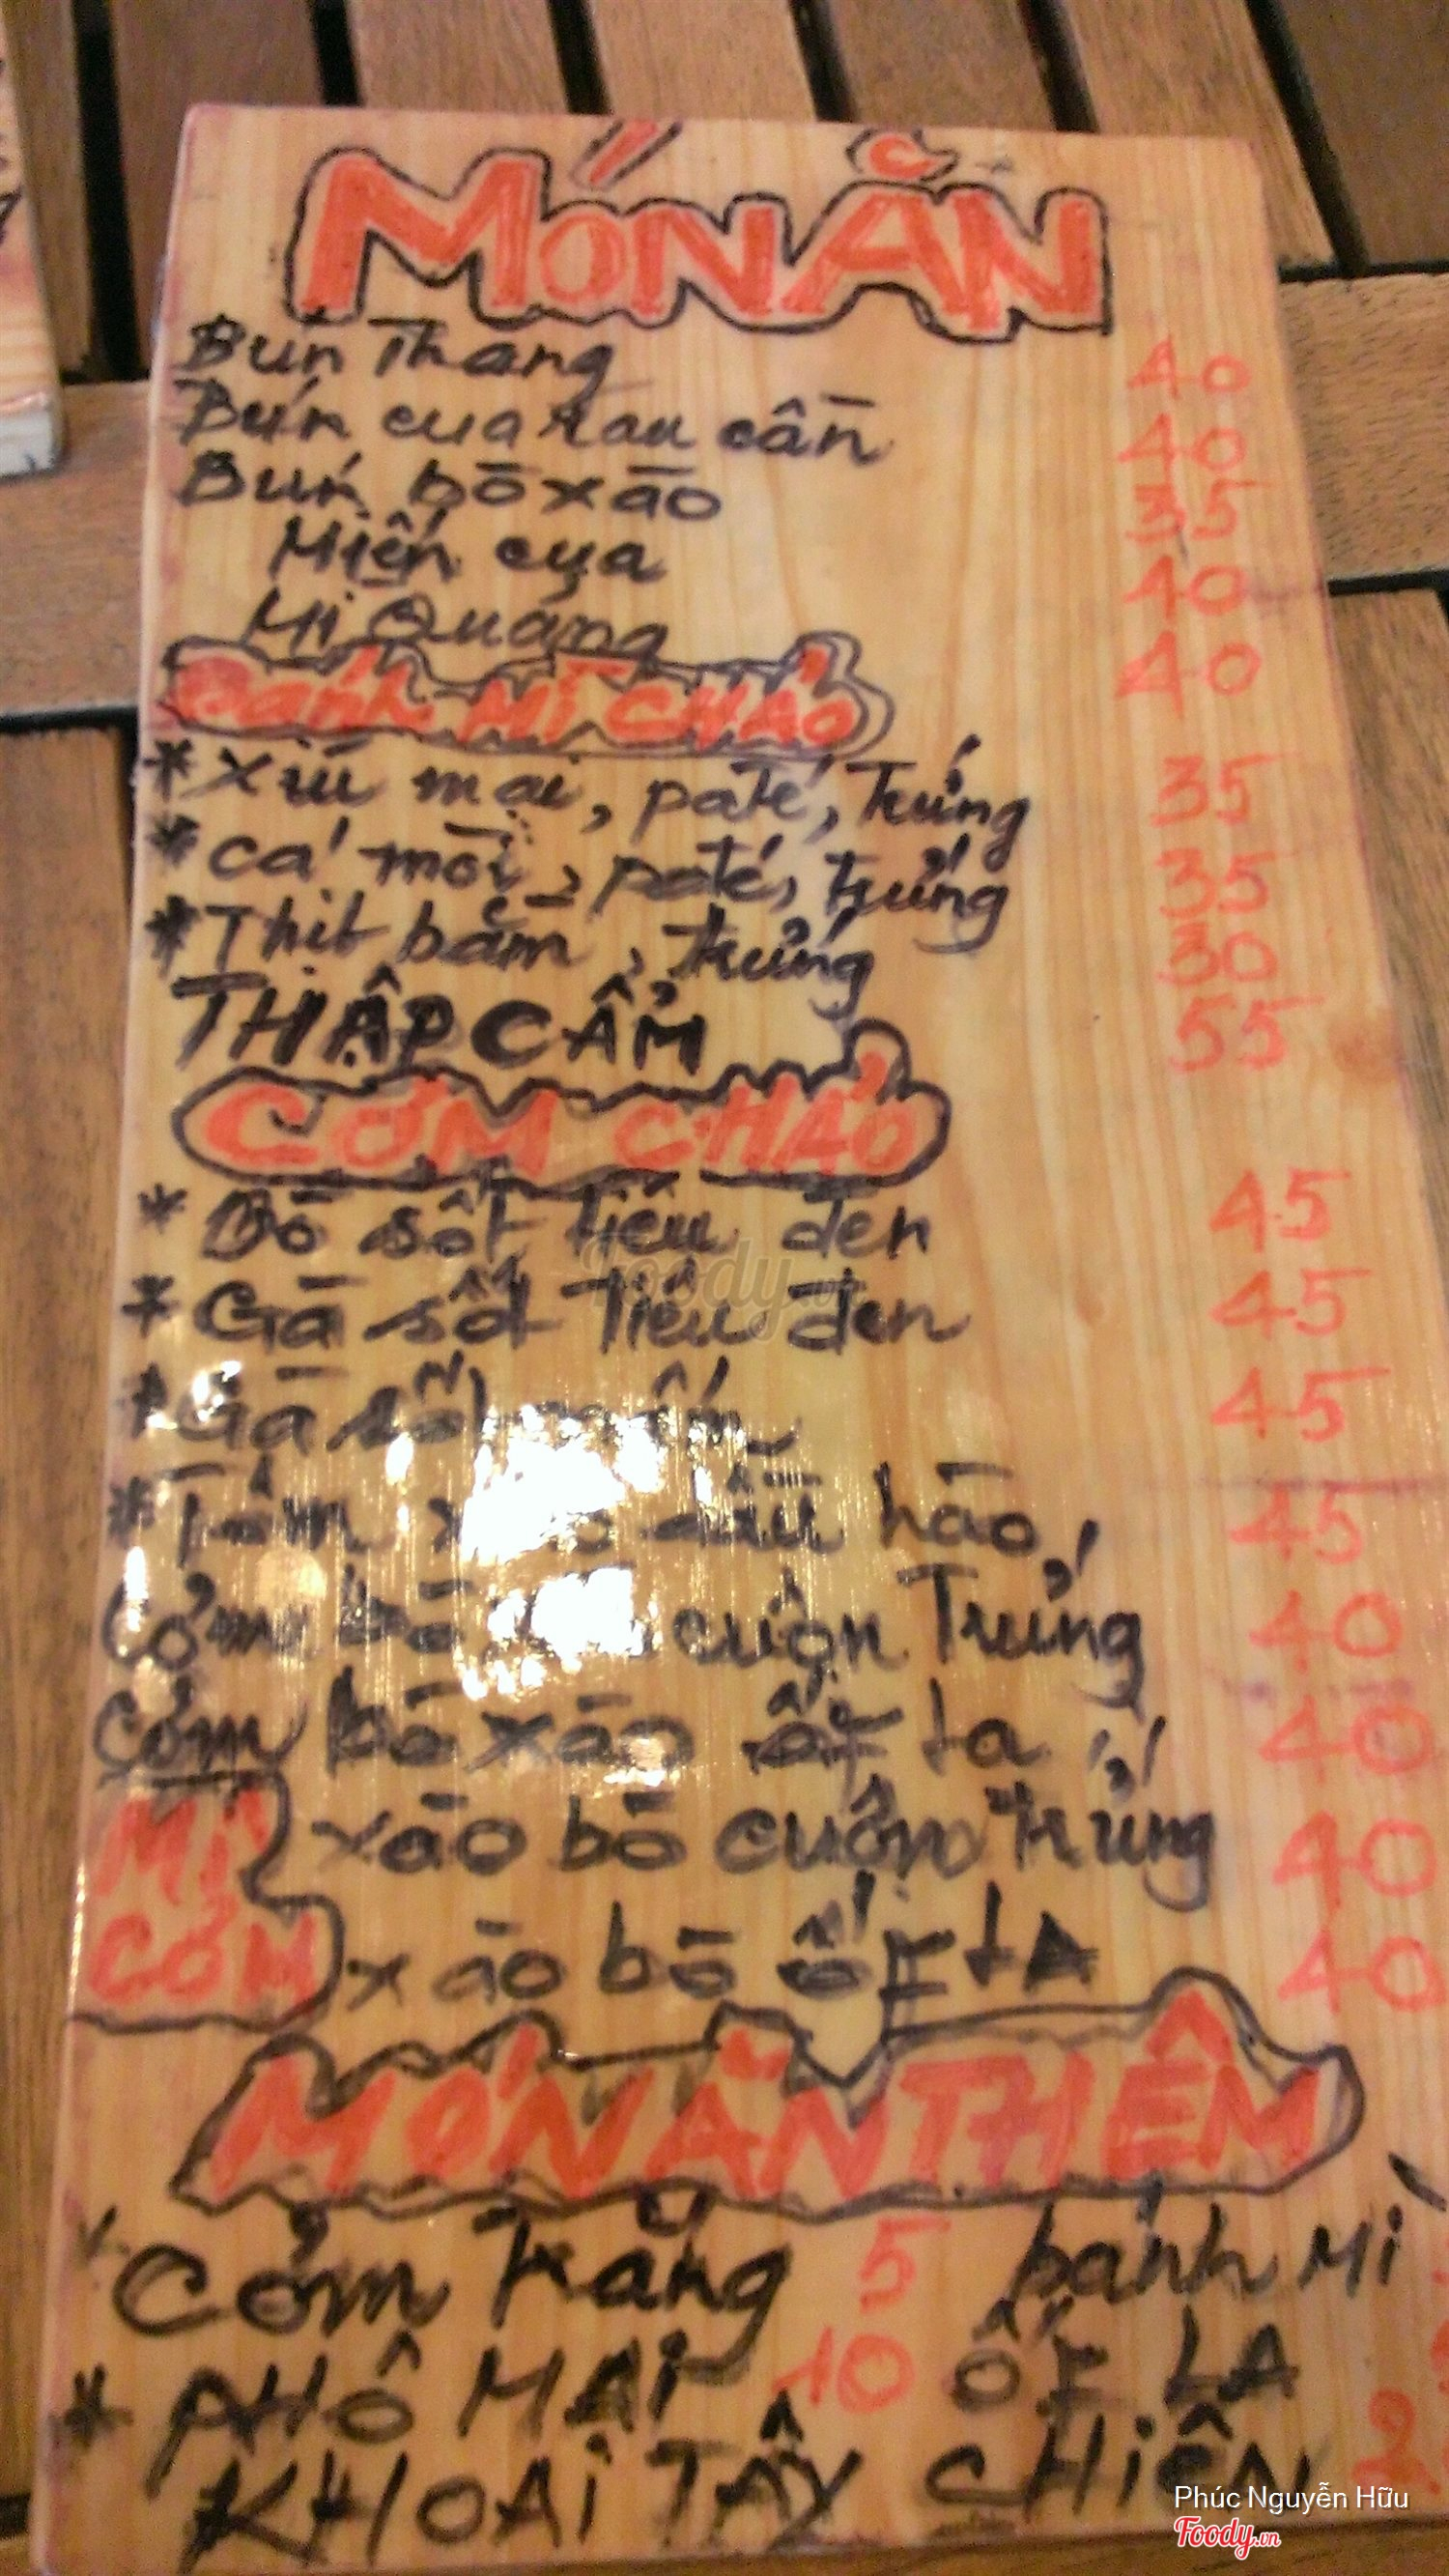 MÓN ĂN
Bún Thang 40
Bún cua rau cần 40
Bún bò xào 35
Miến cua 40
Mì Quảng 40
Bánh Mì CHẢO
* Xíu mại, paté, Trứng 35
* cá mòi, paté, trứng 35
* Thịt bằm, trứng 30
THẬP CẨM 55
CƠM CHẢO
* Bò sốt Tiêu đen 45
* Gà sốt Tiêu đen 45
* Gà sốt nấm 45
* Tôm xào dầu hào 45
Cơm bò cuộn Trứng 40
Cơm bò xào ốp la 40
MÌ xào bò cuộn trứng 40
CƠM xào bò ốp la 40
MÓN ĂN THÊM
Cơm trắng 5 bánh Mì
* PHÔ MAI 10 ỐP LA
KHOAI TÂY CHIÊN 2
Phúc Nguyễn Hữu
Foody.vn
Foody.vn